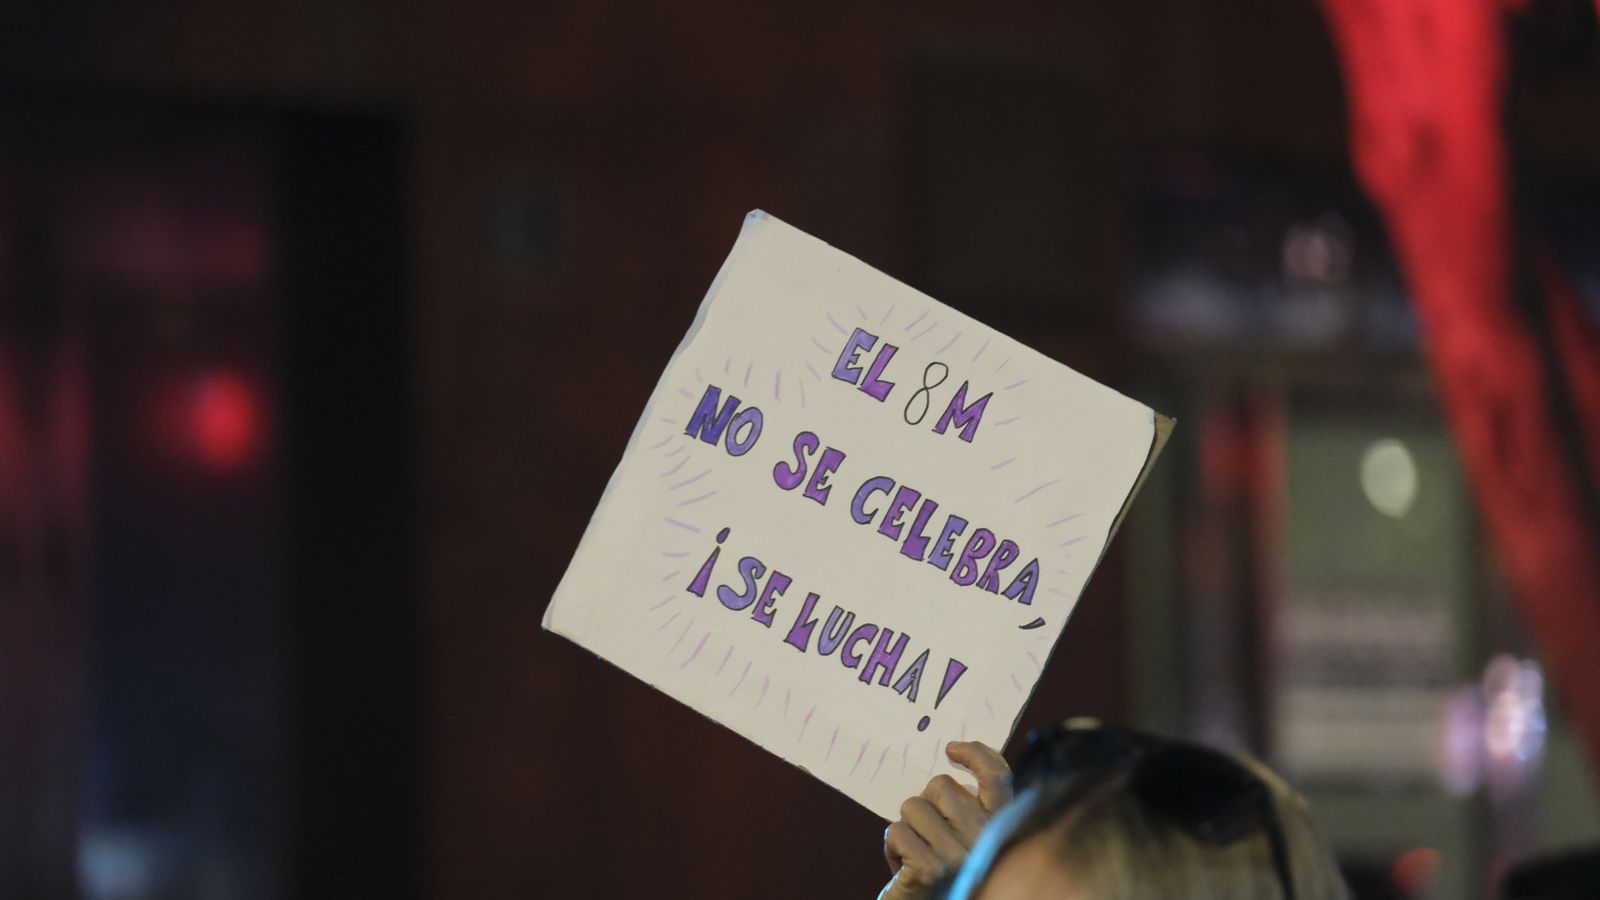 EL 8M
NO SE CELEBRA,
¡SE LUCHA!